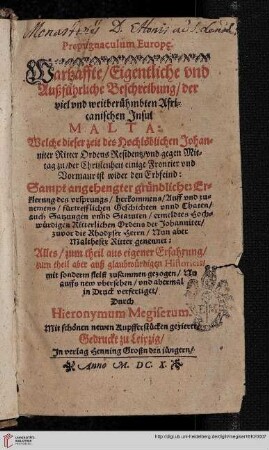 Propugnaculum Europę.
Warhaffte/Eigentliche vnd
Außführliche Beschreibung/der
viel vnd weitberühmbten Afri-
canischen Insul
MALTA:
Welche dieser zeit des Hochlöblichen Johan-
niter Ritter Ordens Residentz/vnd gegen Mit-
tag zu/der Christenheit einige Frontier vnd
Vormaur ist wider den Erbfeind:
Sampt angehengter gründlicher Er-
klerung des vrsprungs/herkommens/Auff vnd zu-
nemens/fürtrefflichen Geschichten vnnd Thaten/
auch Satzungen vnnd Statuten/ermeldtes Hoch-
würdigen Ritterlichen Ordens der Johanniter/
zuvor die Rhodyser Herrn/Nun aber
Maltheser Ritter genennet:
Alles/zum theil aus eigener Erfahrung/
zum theil aber auß glaubwürdigen Historicis/
mit sondern fleiß zusammen gezogen/Nu
auffs new vbersehen/vnd abermal
in Druck verfertiget/
Durch
Hieronymum Megiserum.
Mit schönen newen Kupfferstücken gezieret.
Gedruckt zu Leipzig/
In verlag Henning Großn des jüngern/
Anno M. DC. X.
UNIVERSITÄTS-
BIBLIOTHEK
HEIDELBERG